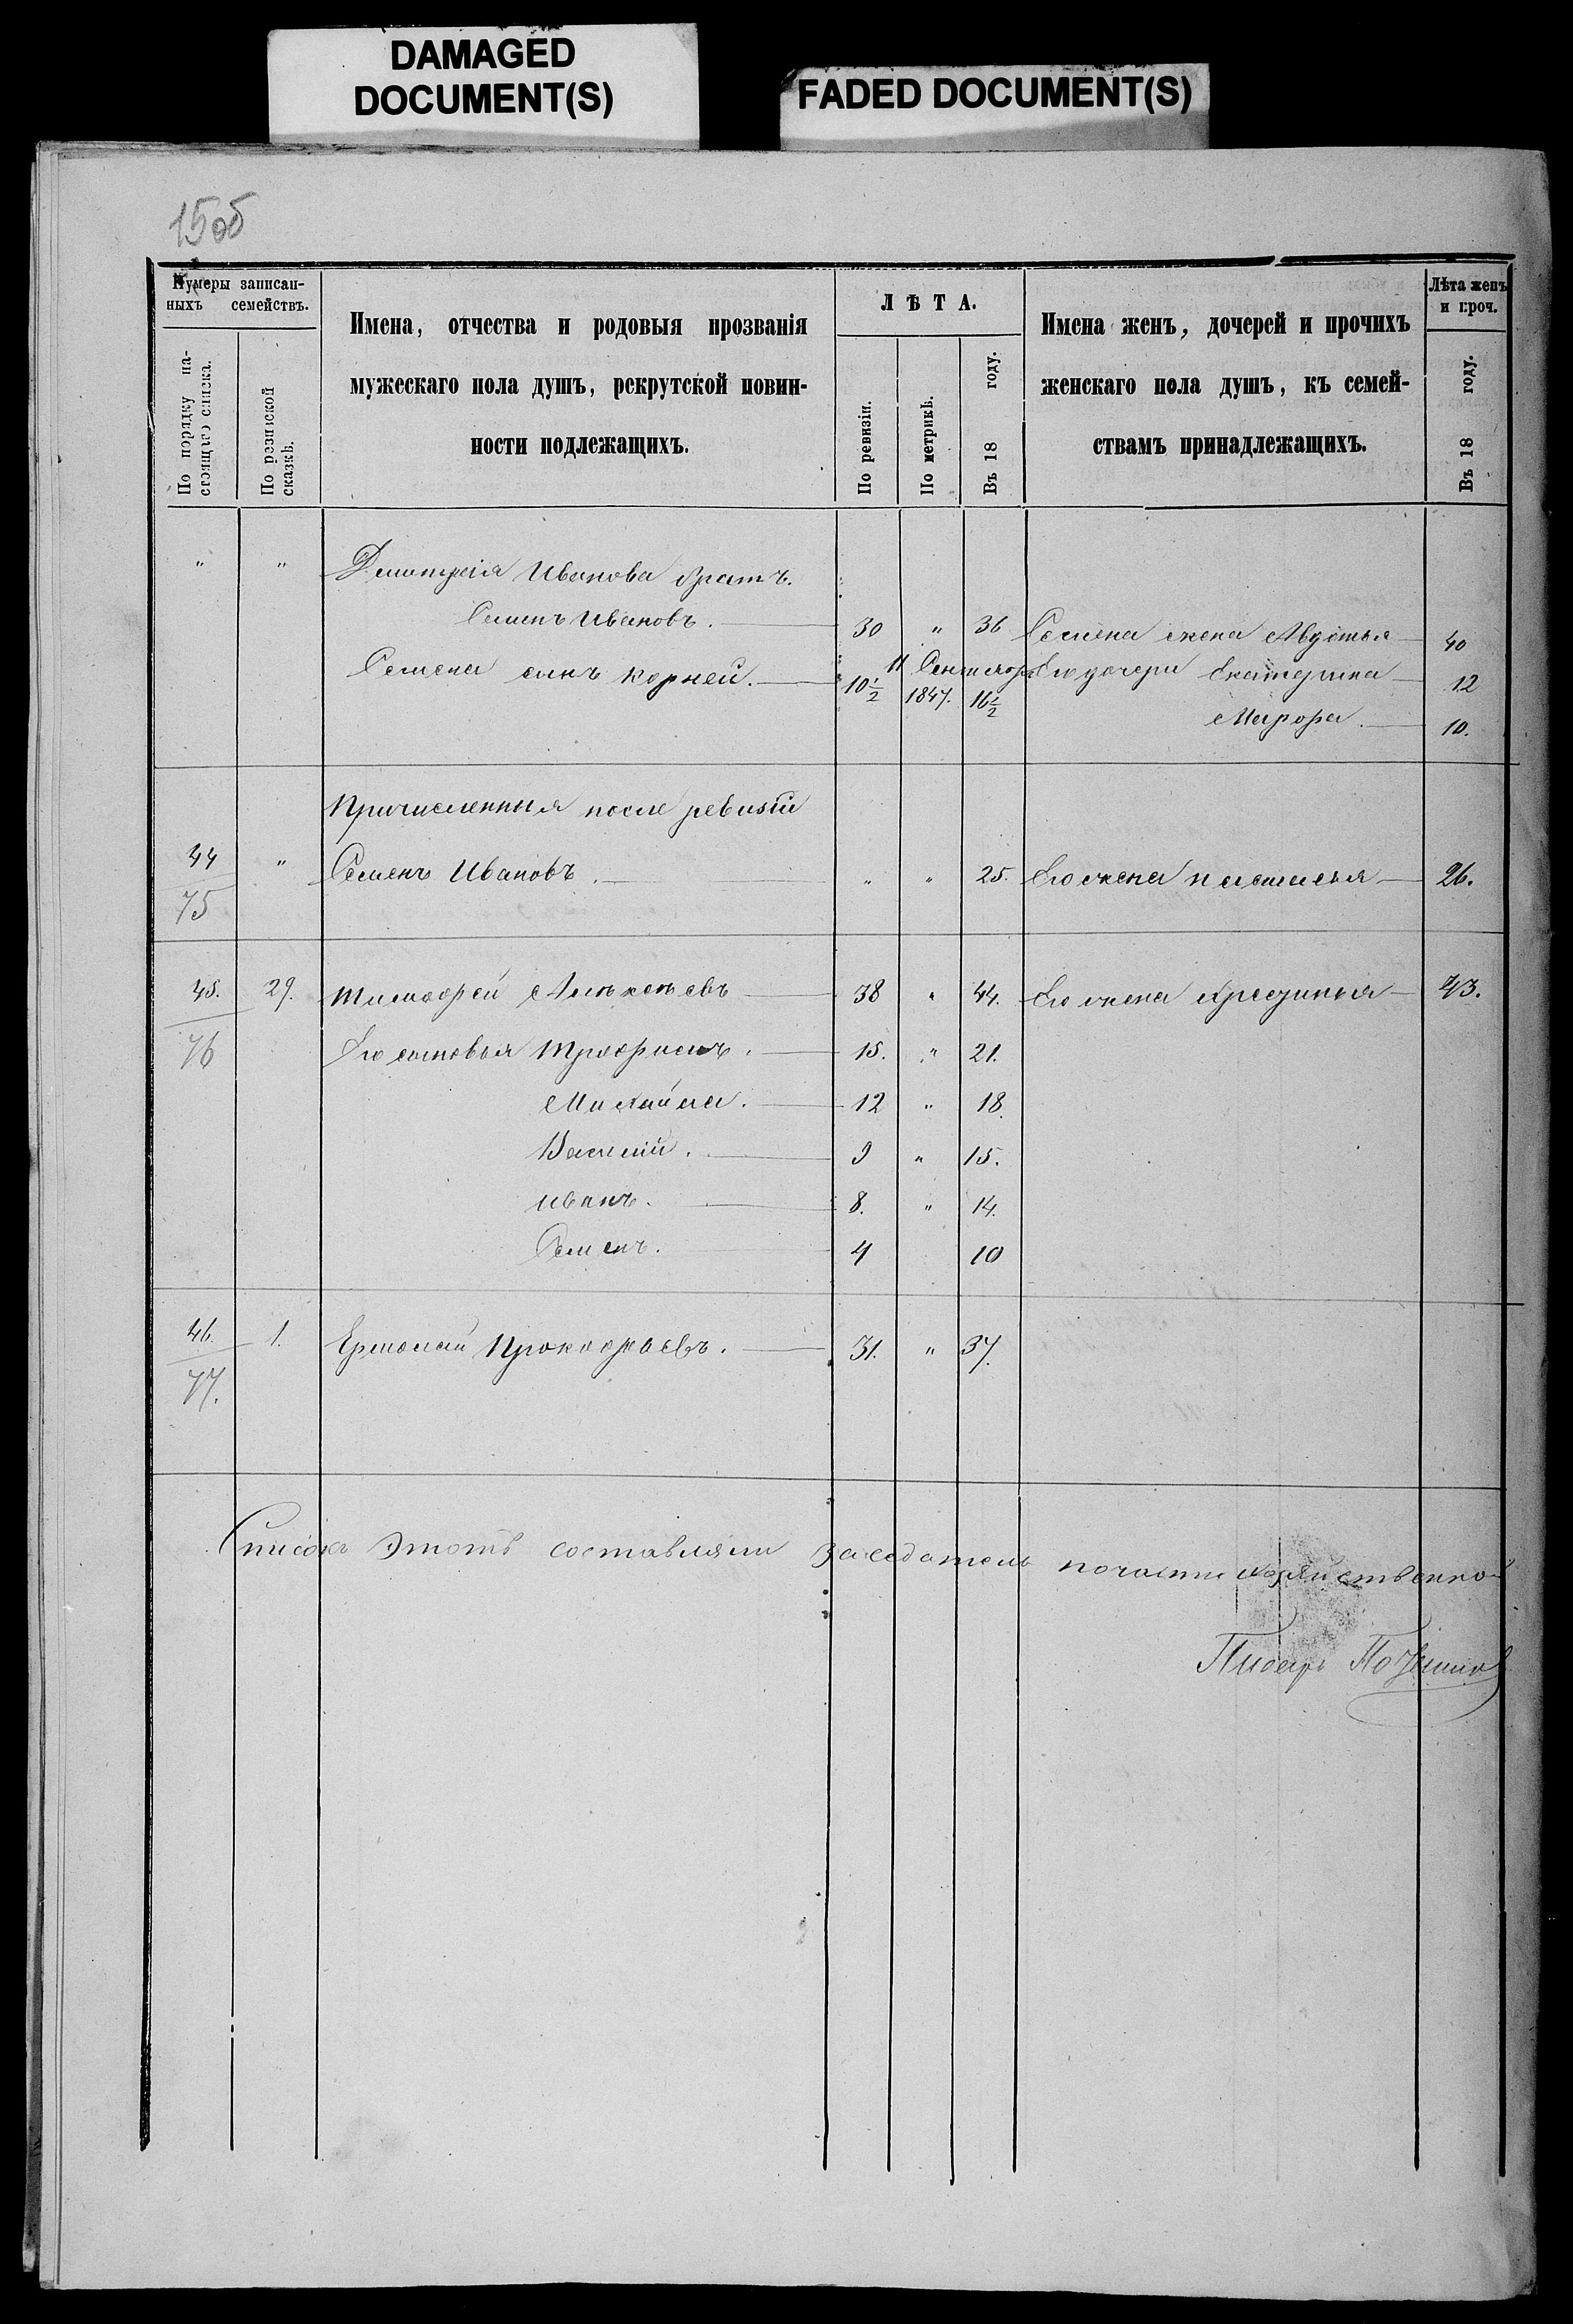 DAMAGED
DOCUMENT(S)
FADED DOCUMENT(S)
15об
Нумеры записан-
ныхъ семействъ.
По порядку на-
стоящаго списка.
По ревизской
сказкѣ.
Имена, отчества и родовыя прозванія
мужескаго пола душъ, рекрутской повин-
ности подлежащихъ.
ЛѢТА.
По ревизіи.
По метрикѣ.
Въ 18 году.
Имена женъ, дочерей и прочихъ
женскаго пола душъ, къ семей-
ствамъ принадлежащихъ.
Лѣта женъ
и проч.
Въ 18 году.
" " Дмитрія Иванова братъ.
Семенъ Ивановъ. 30 " 36 Семена жена Авдотья 40
Семена сынъ Корней. 10½ 11 Сентября 1847. 16½ Его дочери Екатерина 12
Марфа. 10.
Причисленныя после ревизіи
44 " Семенъ Ивановъ. " " 25. Его жена Настасья 26.
75
45. 29. Тимофей 38 " 44. Его жена 43.
76 Его сыновья Трофимъ. 15. " 21.
Михайла. 12 " 18.
Василій. 9 " 15.
Иванъ. 8. " 14.
Семенъ. 4 10
46. 1. Ермолай Прокофьевъ. 31. " 37.
77.
Списокъ этотъ составляли заседатель по части хозяйственной
Писарь